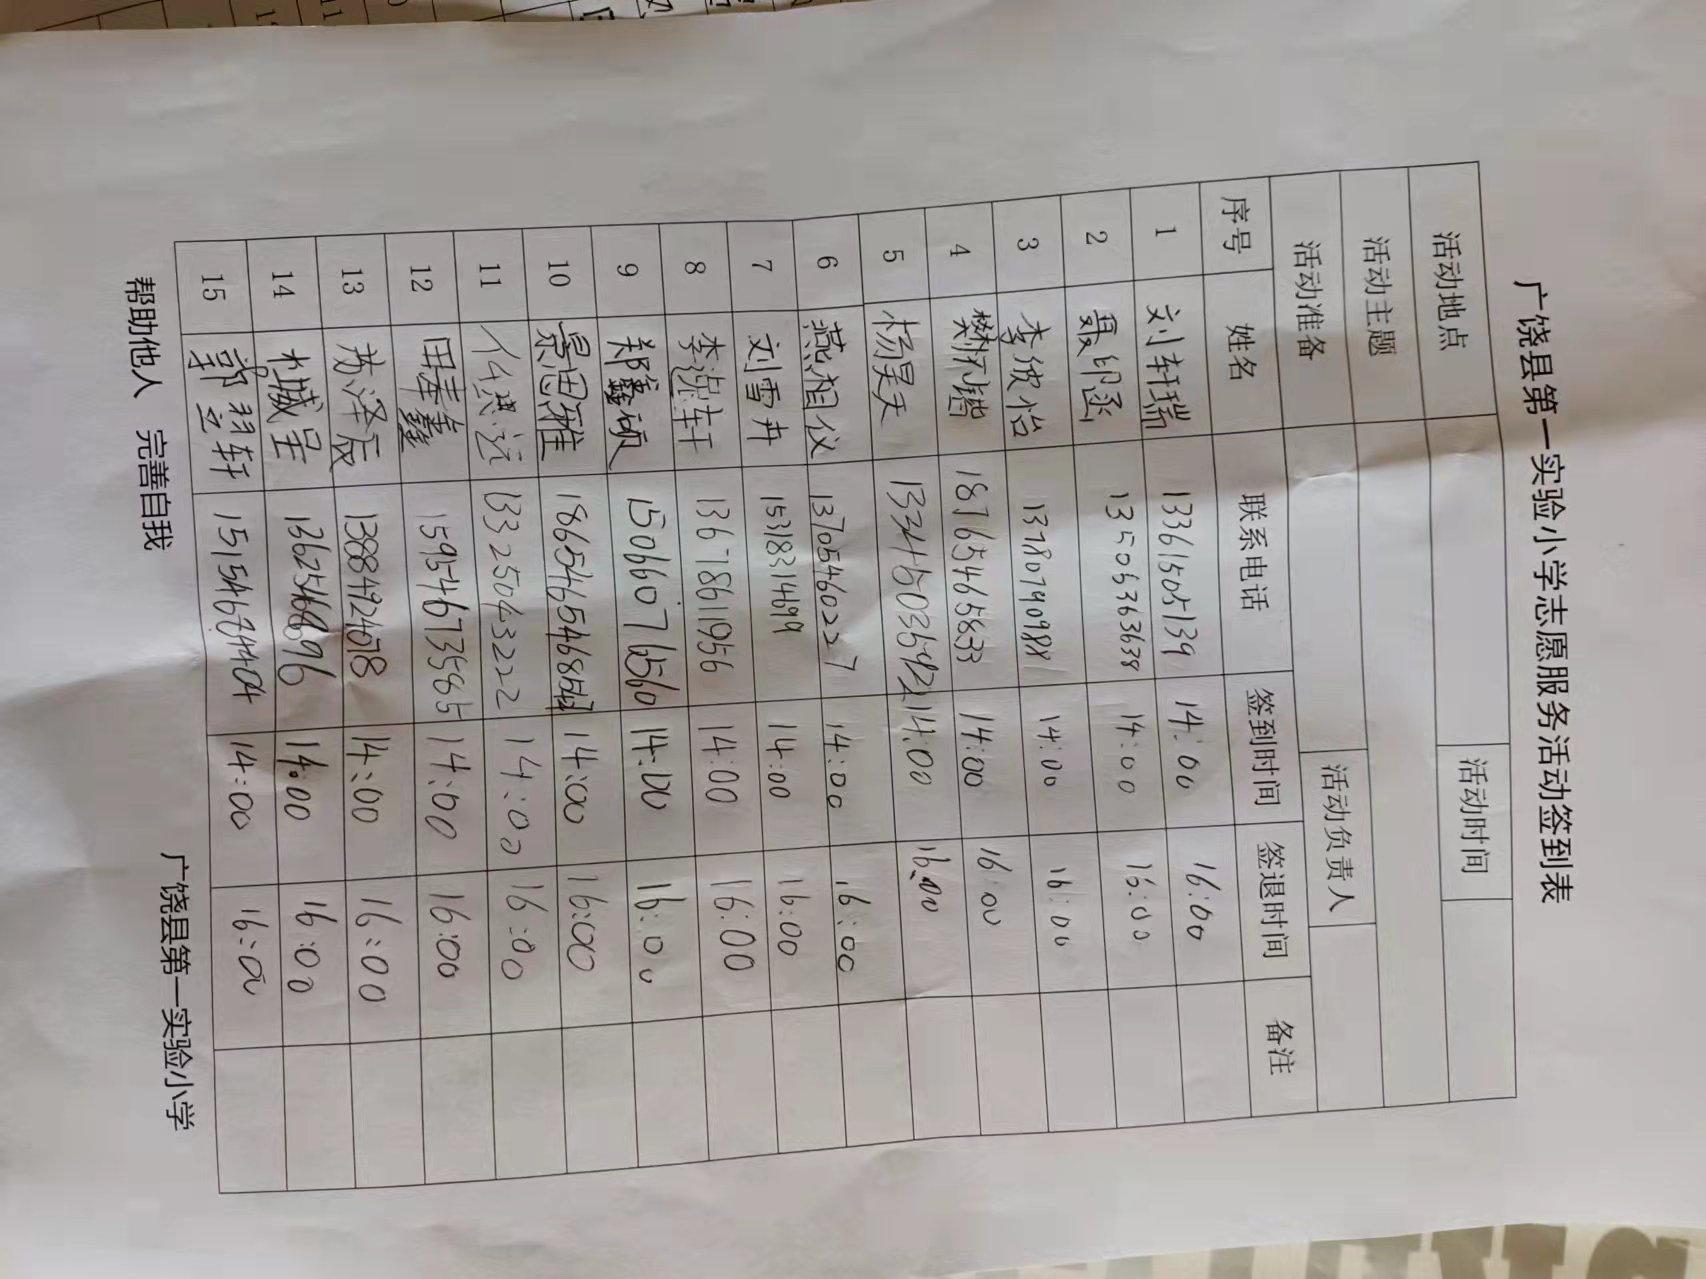 广饶县第一实验小学志愿服务活动签到表
活动地点 活动时间
活动主题
活动准备 活动负责人
序号 姓名 联系电话 签到时间 签退时间 备注
1 刘轩瑞 13361505139 14:00 16:00
2 聂印函 13506363638 14:00 16:00
3 李欣怡 13780790988 14:00 16:00
4 樊 18765465833 14:00 16:00
5 杨昊天 14:00 16:00
6 燕相仪 13705460227 14:00 16:00
7 刘雪卉 15318314699 14:00 16:00
8 李 轩 13678611956 14:00 16:00
9 郑鑫硕 15066076560 14:00 16:00
10 景思雅 14:00 16:00
11 13325043222 14:00 16:00
12 田 鑫 15954673585 14:00 16:00
13 苏泽辰 13884924078 14:00 16:00
14 14:00 16:00
15 郭 轩 14:00 16:00
帮助他人 完善自我 广饶县第一实验小学